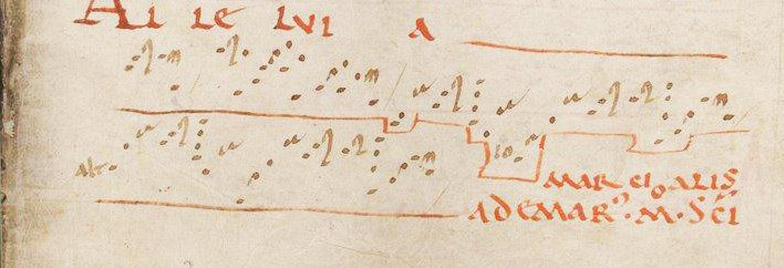 AL LE LVI A
MARCIALIS
ADEMARꝰ · M · SC̄I